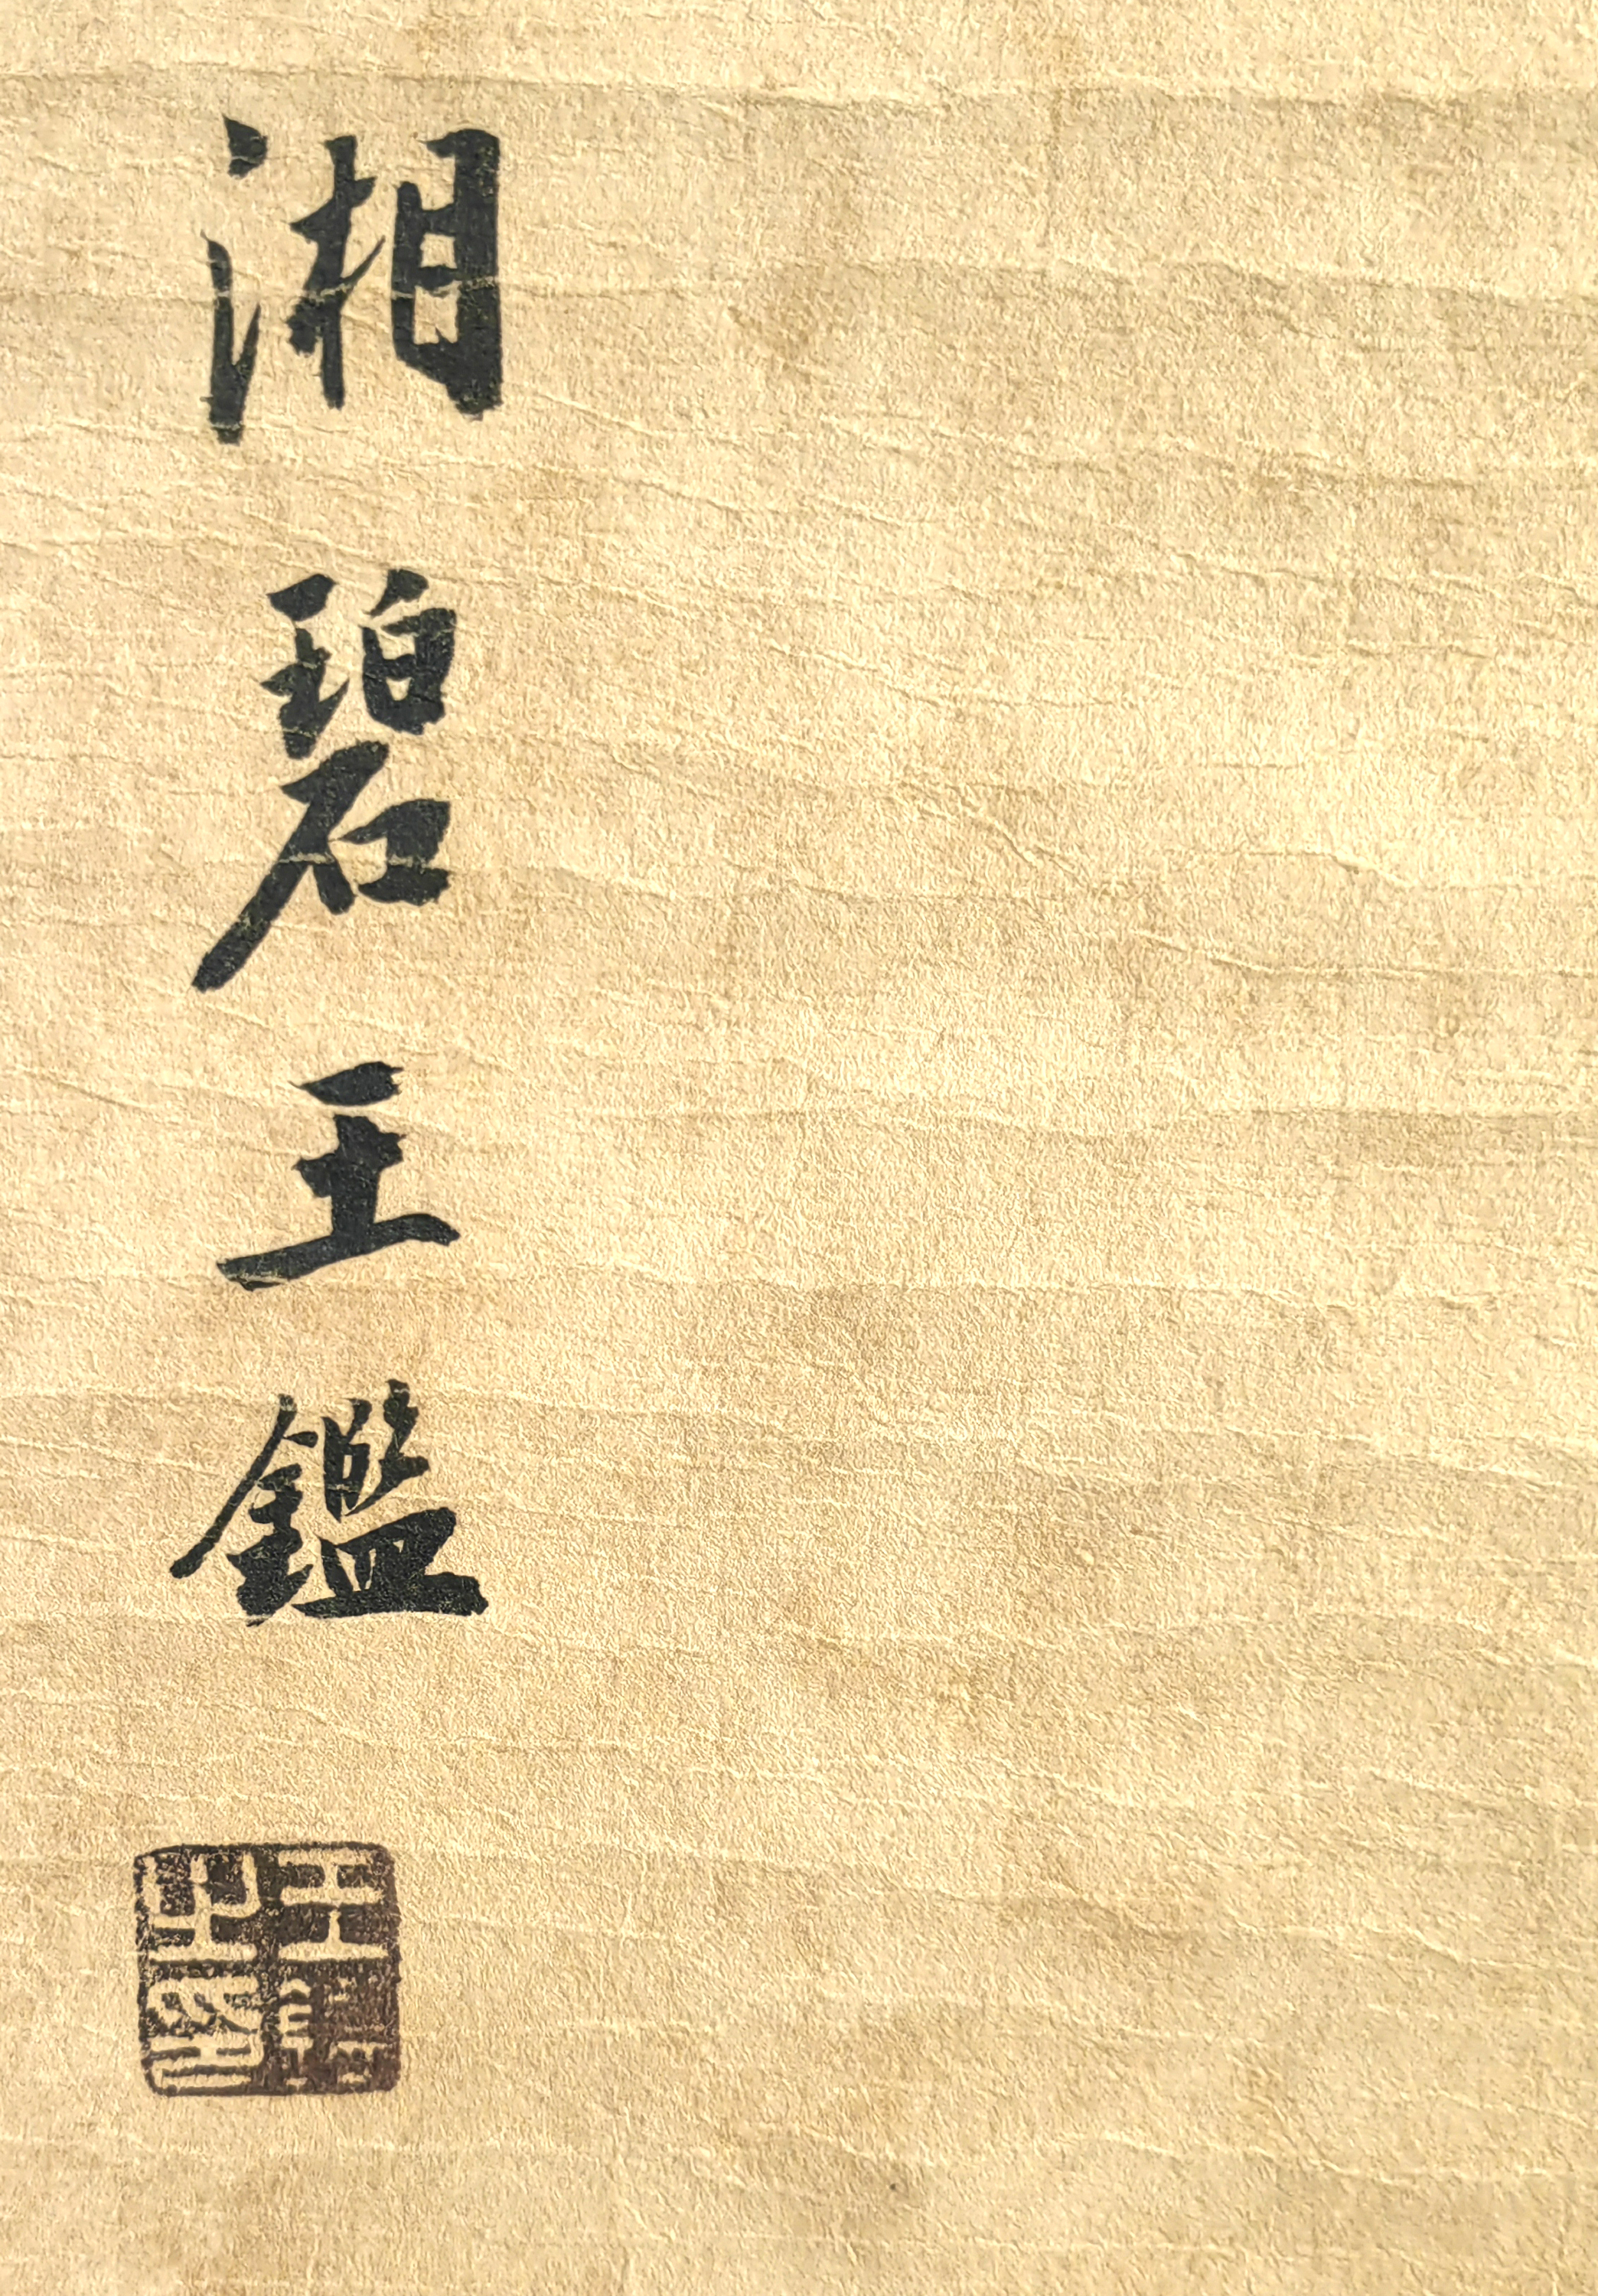 湘碧王鑑
王鑑之印